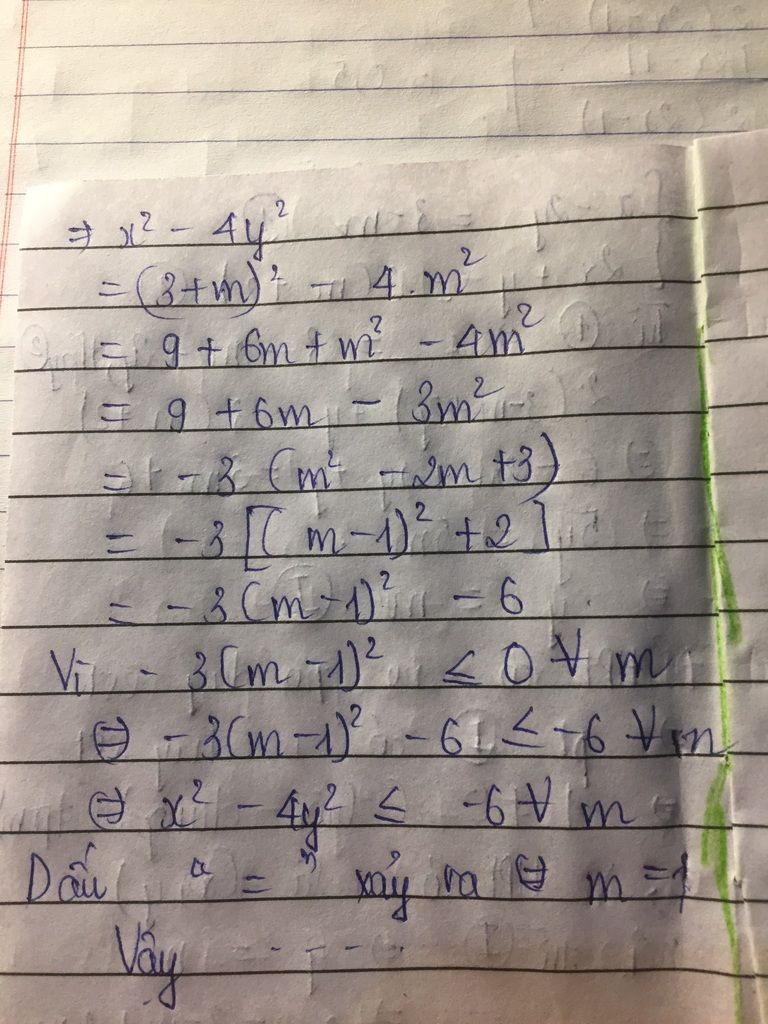 ⇒ x² - 4y²
= (3+m)² - 4.m²
= 9 + 6m + m² - 4m²
= 9 + 6m - 3m²
= -3 (m² - 2m + 3)
= -3 [(m-1)² + 2]
= -3(m-1)² - 6
Vì -3(m-1)² ≤ 0 ∀ m
⇔ -3(m-1)² - 6 ≤ -6 ∀ m
⇔ x² - 4y² ≤ -6 ∀ m
Dấu "=" xảy ra ⇔ m = 1
Vậy - - - -